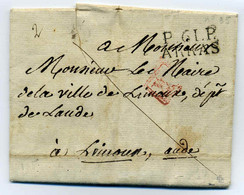 2
P. 61. P.
ARRAS
a Monsieur
Monsieur Le Maire
de la ville de Limoux, dépt
de Laude
à Limoux, aude